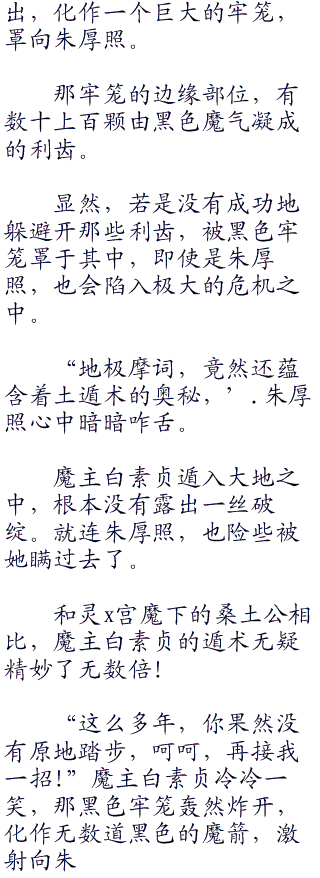 出，化作一个巨大的牢笼，
罩向朱厚照。
那牢笼的边缘部位，有
数十上百颗由黑色魔气凝成
的利齿。
显然，若是没有成功地
躲避开那些利齿，被黑色牢
笼罩于其中，即使是朱厚
照，也会陷入极大的危机之
中。
“地极摩词，竟然还蕴
含着土遁术的奥秘，’.朱厚
照心中暗暗咋舌。
魔主白素贞遁入大地之
中，根本没有露出一丝破
绽。就连朱厚照，也险些被
她瞒过去了。
和灵x宫魔下的桑土公相
比，魔主白素贞的遁术无疑
精妙了无数倍！
“这么多年，你果然没
有原地踏步，呵呵，再接我
一招！”魔主白素贞冷冷一
笑，那黑色牢笼轰然炸开，
化作无数道黑色的魔箭，激
射向朱